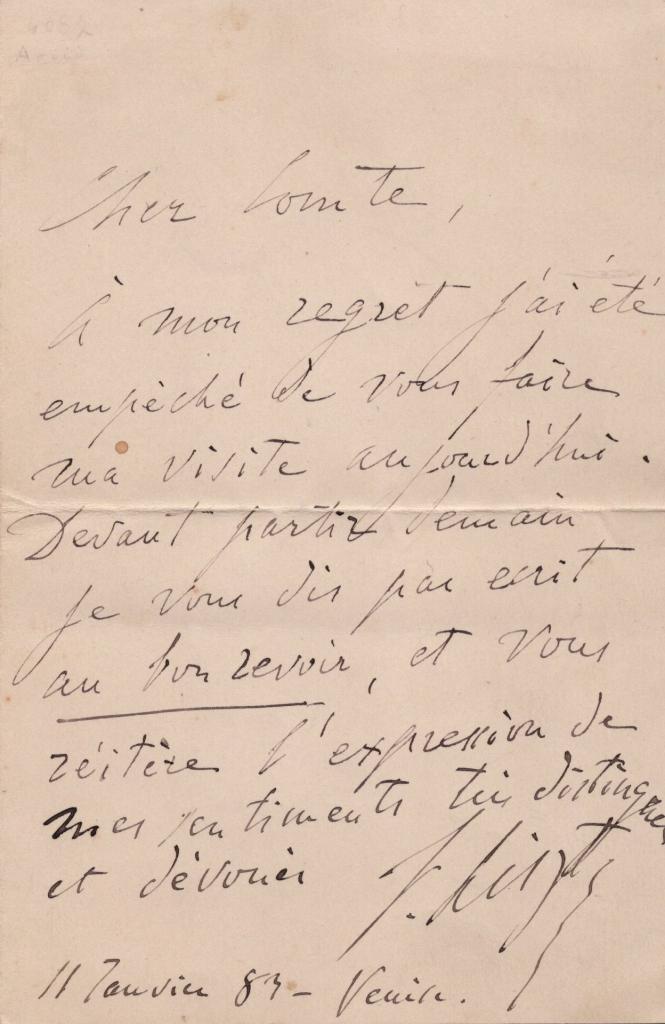 Cher Comte,
À mon regret j'ai été
empèché de vous faire
ma visite aujourd'hui.
Devant partir demain
je vous dis par ecrit
au bon revoir, et vous
réitère l'expression de
mes sentiments très distingués
et dévoués F. Liszt
11 Janvier 83 – Venise.